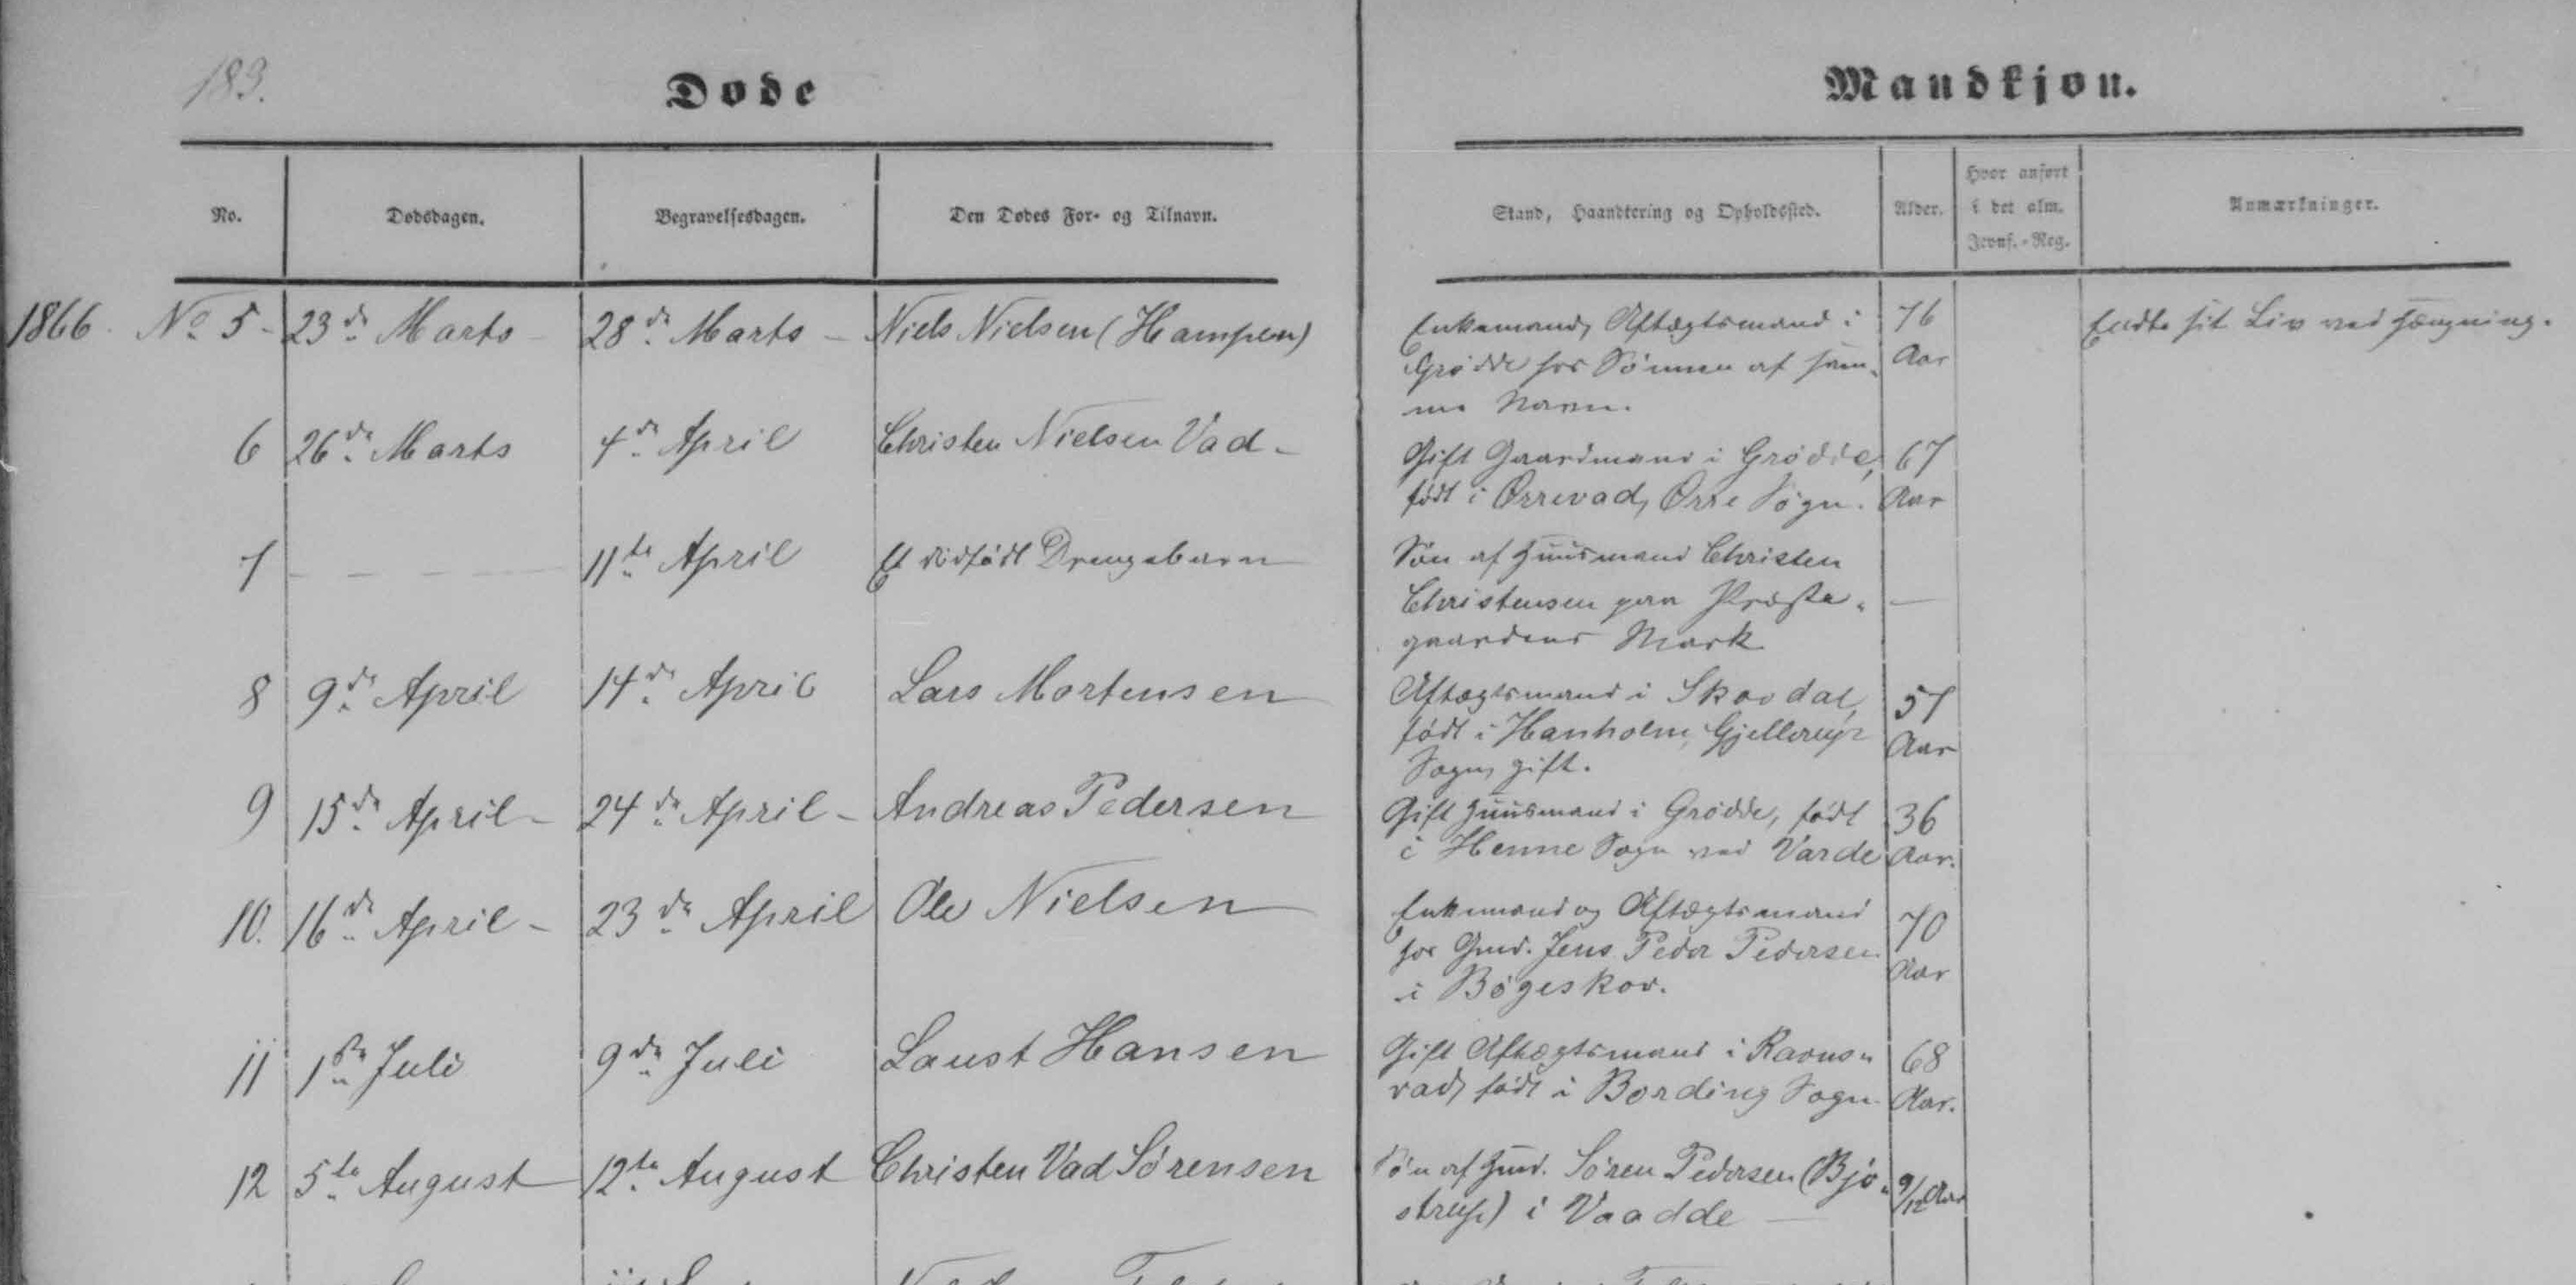 183.
Døde
Mandkjøn.
No.
Dødsdagen.
Begravelsesdagen.
Den Dødes For- og Tilnavn.
Stand, Haandtering og Opholdssted.
Alder.
Hvor anført
i det alm.
Jevnf.-Reg.
Anmærkninger.
1866. No 5- 23de Marts - 28de Marts - Niels Nielsen (Hampen)
Enkemand, Aftægtsmand i
Grødde hos Sønnen af sam-
me Navn.
76
Aar
Endte sit Liv ved Hængning.
6 26de Marts 4de April Christen Nielsen Vad -
Gift Gaardmand i Grødde,
født i Ørrevad, Ørre Sogn.
67
Aar
7 - - - - 11te April Et dødfødt Drengebarn
Søn af Huusmand Christen
Christensen paa Præste-
gaardens Mark
—
8 9de April 14de April Lars Mortensen
Aftægtsmand i Skovdal,
født i Hanholm, Gjellerup
Sogn, gift.
57
Aar
9 15de April - 24de April - Andreas Pedersen
Gift Huusmand i Grødde, født
i Henne Sogn ved Varde
36
Aar.
10. 16de April - 23de April Ole Nielsen
Enkemand og Aftægtsmand
hos Gmd. Jens Peder Pedersen
i Bøgeskov.
70
Aar
11 1ste Juli 9de Juli Laust Hansen
Gift Aftægtsmand i Ravns-
vad, født i Bording Sogn
68
Aar.
12 5te August 12te August Christen Vad Sørensen
Søn af Hmd. Søren Pedersen (Bjø-
strup) i Vaadde —
9/12 Aar